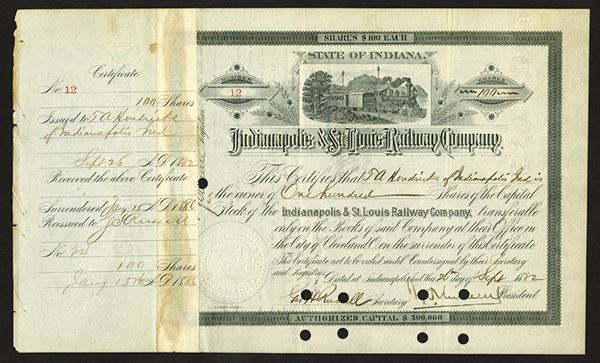 Certificate
No. 12
100 Shares
Issued to T A Hendricks
of Indianapolis Ind
Sept 26 A.D. 1882
Received the above Certificate
Surrendered Jany 15 A.D. 188
Reissued to Russell
No. 24
100 Shares
Jany 15th A.D. 188
SHARES $100 EACH
STATE OF INDIANA.
NUMBER
12
SHARES
100
Indianapolis & St. Louis Railway Company.
This Certifies that T A Hendricks of Indianapolis Ind is
the owner of One hundred Shares of the Capital
Stock of the Indianapolis & St. Louis Railway Company, transferable
only on the Books of said Company at their Office in
the City of Cleveland O. on the surrender of this Certificate
This Certificate not to be valid until Countersigned by their Secretary
and Registrar. Dated at Indianapolis and this 26th day of Sept 1882
Russell Secretary President
AUTHORIZED CAPITAL $ 500,000